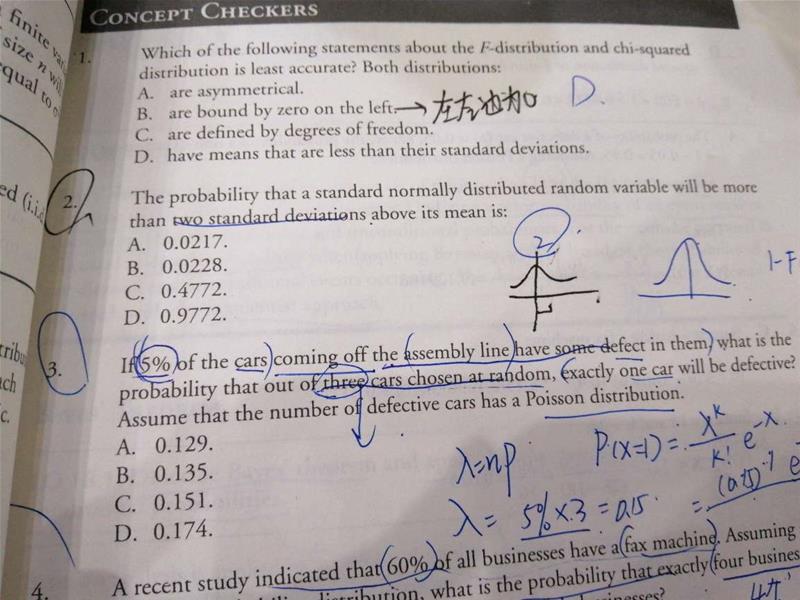 CONCEPT CHECKERS
finite
size n
equal to
1. Which of the following statements about the F-distribution and chi-squared
distribution is least accurate? Both distributions:
A. are asymmetrical.
B. are bound by zero on the left. → D.
C. are defined by degrees of freedom.
D. have means that are less than their standard deviations.
ed (i.i.d
2. The probability that a standard normally distributed random variable will be more
than two standard deviations above its mean is:
A. 0.0217.
B. 0.0228.
C. 0.4772.
D. 0.9772.
2
1-F
3. If 5% of the cars coming off the assembly line have some defect in them, what is the
probability that out of three cars chosen at random, exactly one car will be defective?
Assume that the number of defective cars has a Poisson distribution.
A. 0.129.
B. 0.135.
C. 0.151.
D. 0.174.
λ=np
P(X=1) = X^k/k! e^-x
λ = 5%×3 = 0.15
4. A recent study indicated that 60% of all businesses have a fax machine. Assuming
distribution, what is the probability that exactly four